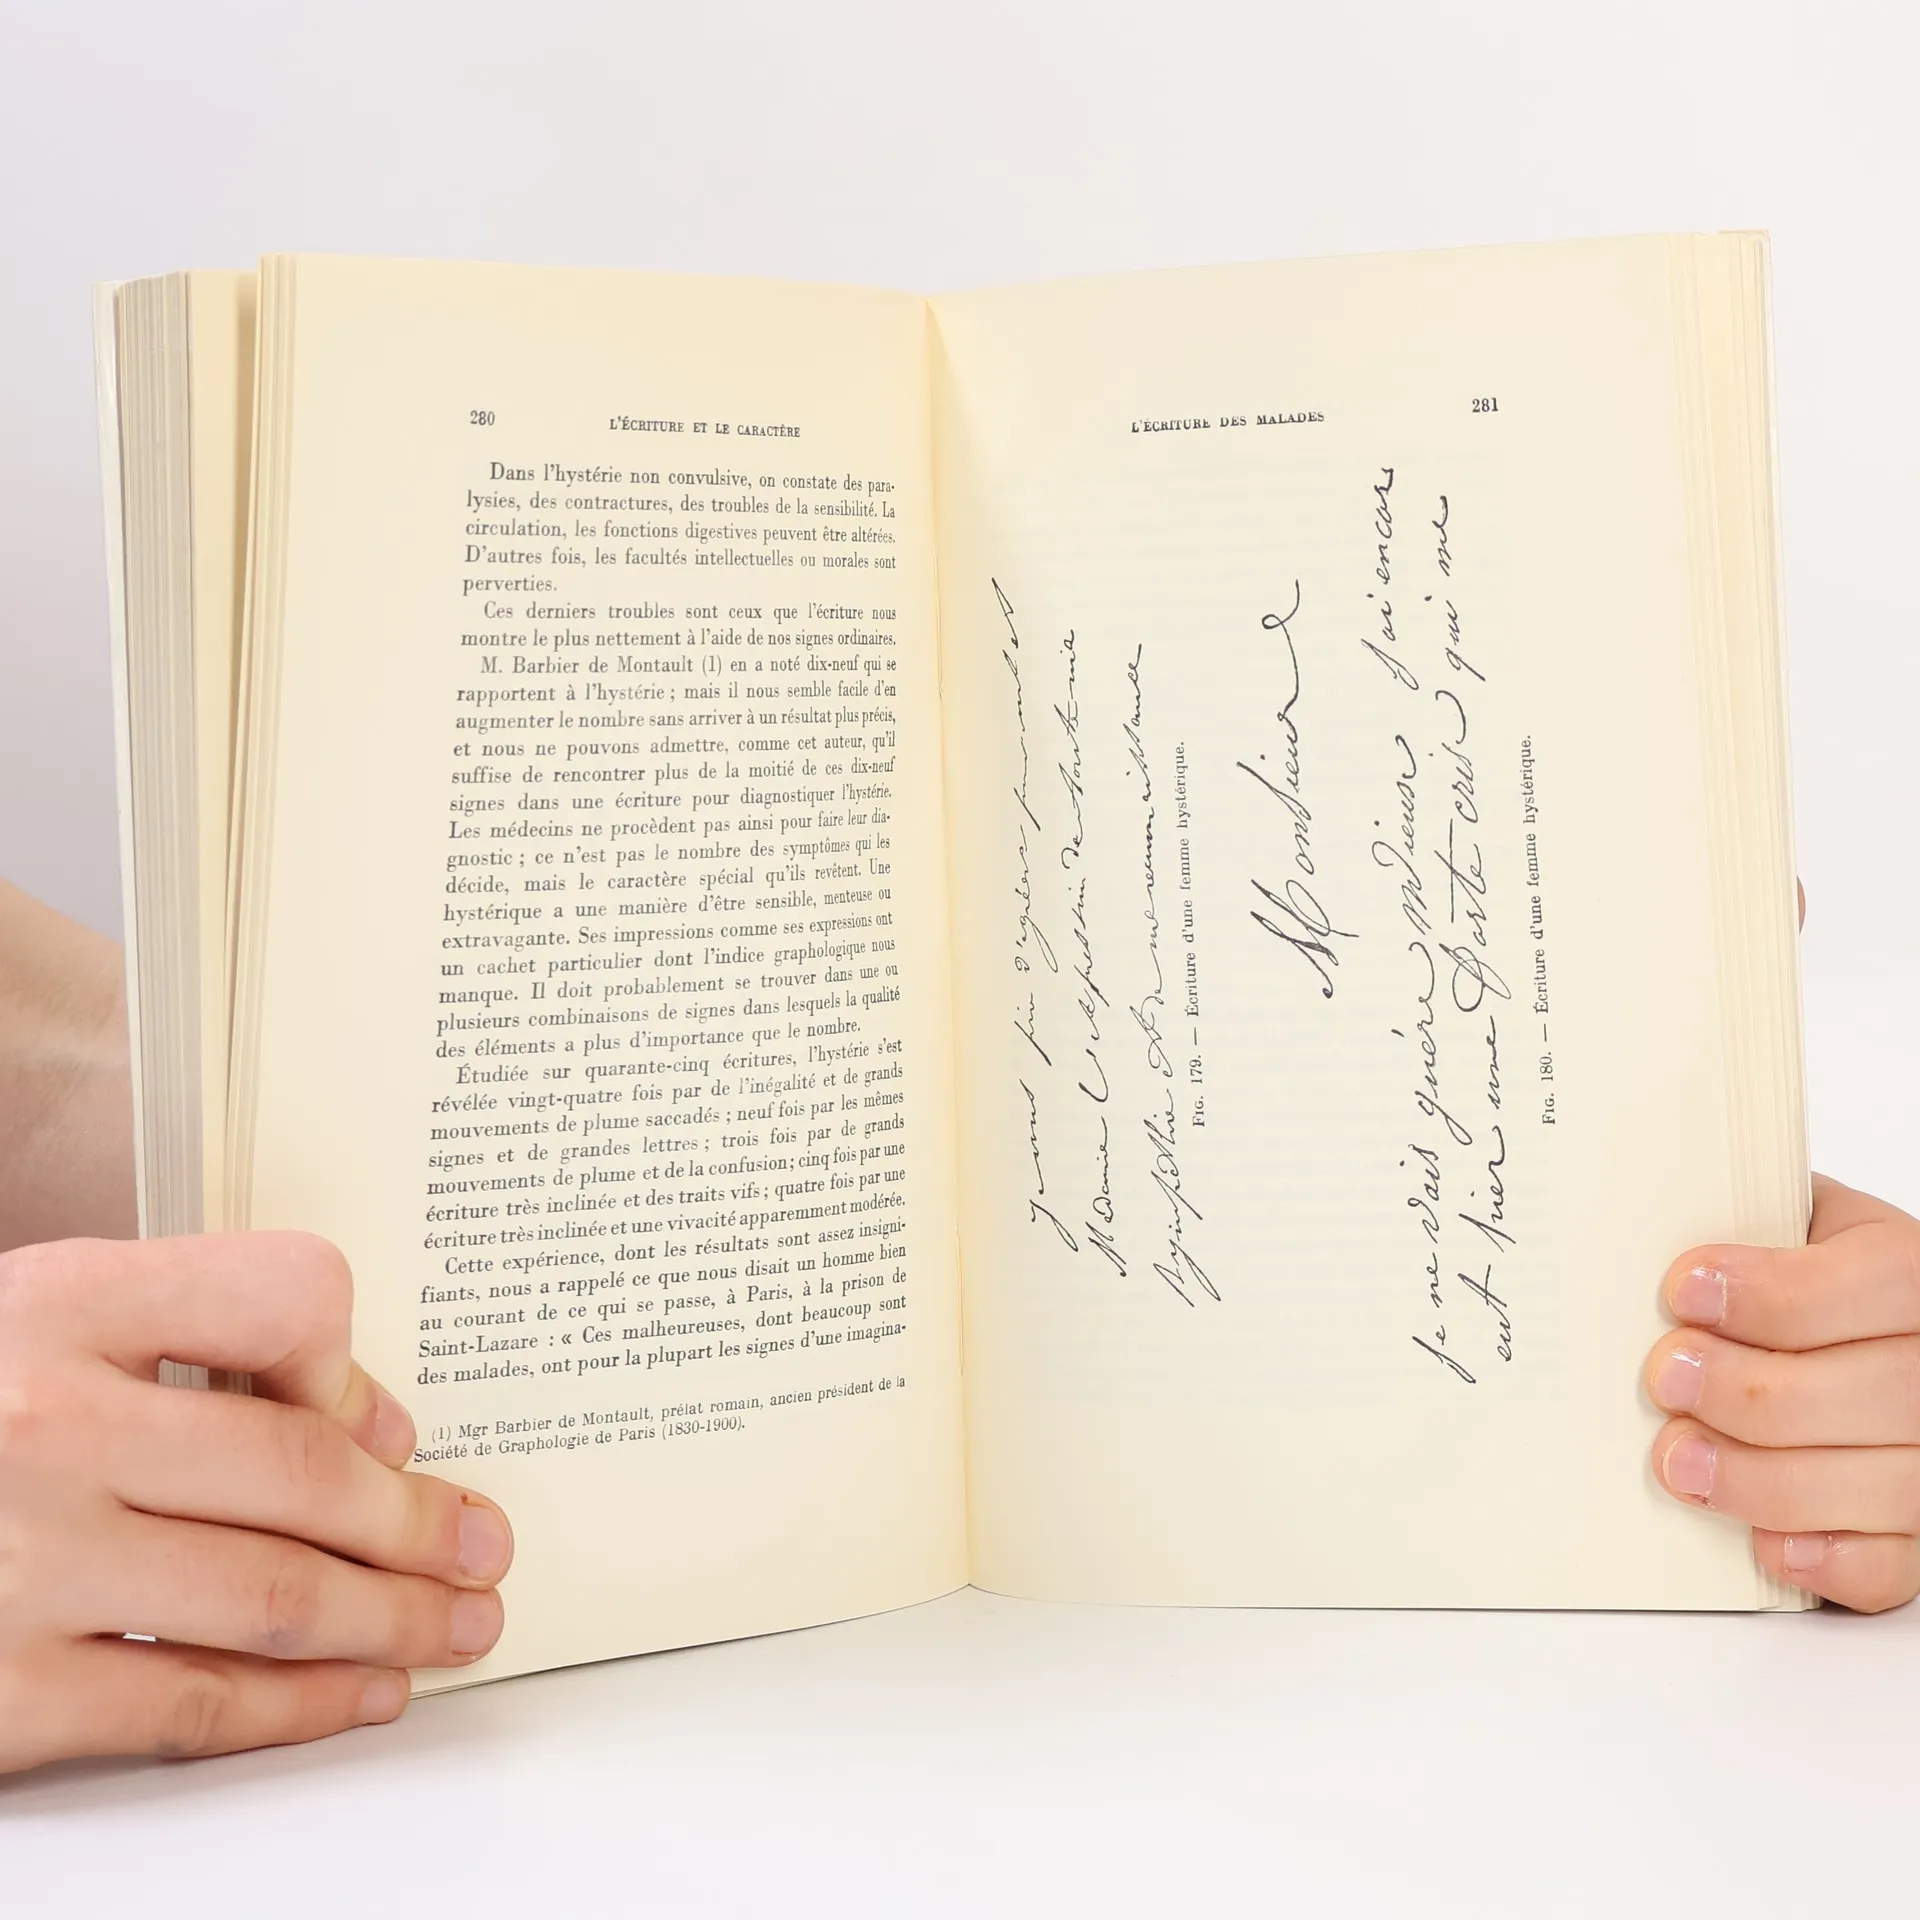 280
L'ÉCRITURE ET LE CARACTÈRE
Dans l'hystérie non convulsive, on constate des para-
lysies, des contractures, des troubles de la sensibilité. La
circulation, les fonctions digestives peuvent être altérées.
D'autres fois, les facultés intellectuelles ou morales sont
perverties.
Ces derniers troubles sont ceux que l'écriture nous
montre le plus nettement à l'aide de nos signes ordinaires.
M. Barbier de Montault (1) en a noté dix-neuf qui se
rapportent à l'hystérie ; mais il nous semble facile d'en
augmenter le nombre sans arriver à un résultat plus précis,
et nous ne pouvons admettre, comme cet auteur, qu'il
suffise de rencontrer plus de la moitié de ces dix-neuf
signes dans une écriture pour diagnostiquer l'hystérie.
Les médecins ne procèdent pas ainsi pour faire leur dia-
gnostic ; ce n'est pas le nombre des symptômes qui les
décide, mais le caractère spécial qu'ils revêtent. Une
hystérique a une manière d'être sensible, menteuse ou
extravagante. Ses impressions comme ses expressions ont
un cachet particulier dont l'indice graphologique nous
manque. Il doit probablement se trouver dans une ou
plusieurs combinaisons de signes dans lesquels la qualité
des éléments a plus d'importance que le nombre.
Étudiée sur quarante-cinq écritures, l'hystérie s'est
révélée vingt-quatre fois par de l'inégalité et de grands
mouvements de plume saccadés ; neuf fois par les mêmes
signes et de grandes lettres ; trois fois par de grands
mouvements de plume et de la confusion ; cinq fois par une
écriture très inclinée et des traits vifs ; quatre fois par une
écriture très inclinée et une vivacité apparemment modérée.
Cette expérience, dont les résultats sont assez insigni-
fiants, nous a rappelé ce que nous disait un homme bien
au courant de ce qui se passe, à Paris, à la prison de
Saint-Lazare : « Ces malheureuses, dont beaucoup sont
des malades, ont pour la plupart les signes d'une imagina-
(1) Mgr Barbier de Montault, prélat romain, ancien président de la
Société de Graphologie de Paris (1830-1900).
L'ÉCRITURE DES MALADES
281
vous prie d'agréer
Madame l'expression de toute ma
sympathie & de ma reconnaissance
FIG. 179. — Écriture d'une femme hystérique.
Monsieur
Je ne vais guére mieux j'ai encore
eut hier une forte crise qui me
FIG. 180. — Écriture d'une femme hystérique.